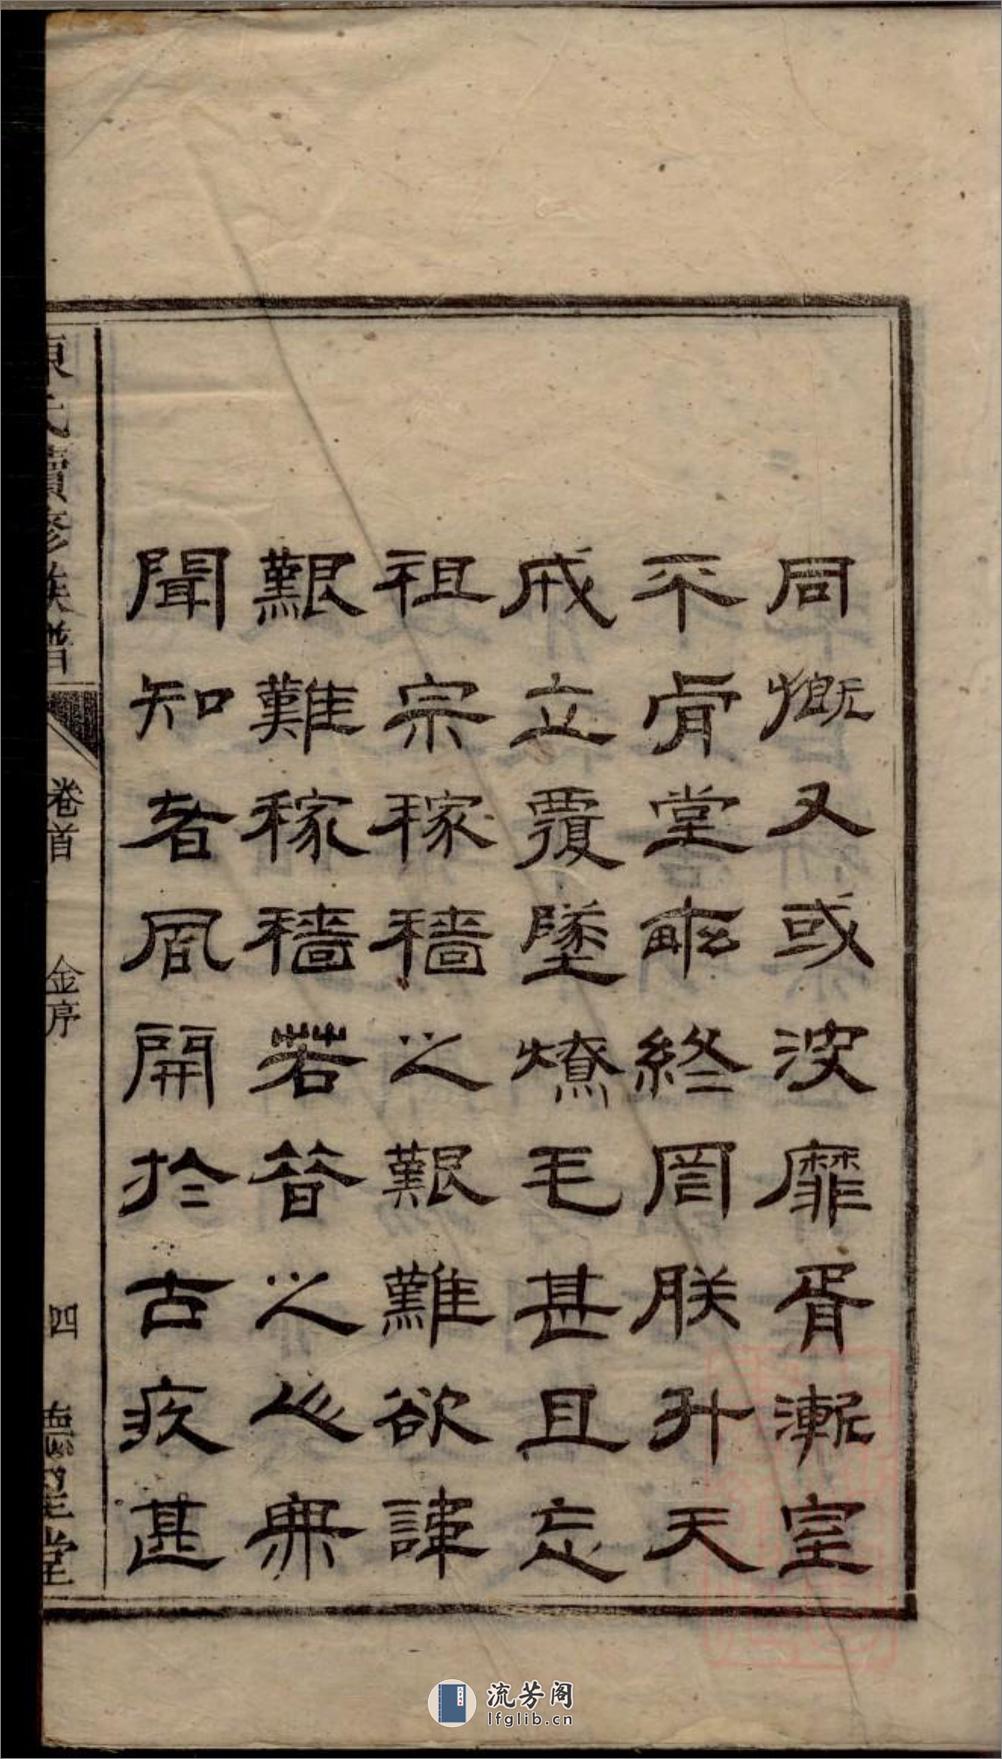 同慨又或波靡胥漸室
不肯堂畝終罔朕升天
成立覆墜燎毛甚且忘
祖宗稼穡之艱難欲諱
艱難稼穡若昔之人無
聞知者風開於古疾甚
陳氏續修族譜
卷首
金序
四
德星堂
流芳阁
lfglib.cn